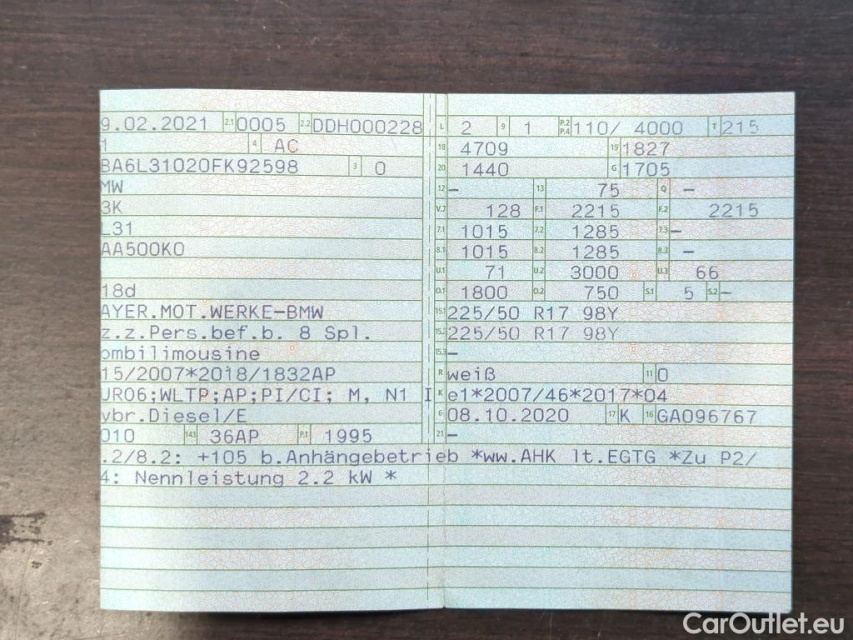 9.02.2021 2.1 0005 2.2 DDH000228
1 4 AC
BA6L31020FK92598 3 0
MW
3K
L31
AA500K0
18d
AYER.MOT.WERKE-BMW
z.z.Pers.bef.b. 8 Spl.
ombilimousine
15/2007*2018/1832AP
UR06;WLTP;AP;PI/CI; M, N1 I
ybr.Diesel/E
010 14.1 36AP P.1 1995
.2/8.2: +105 b.Anhängebetrieb *ww.AHK lt.EGTG *Zu P2/
4: Nennleistung 2.2 kW *
L 2 9 1 P.2 P.4 110/ 4000 T 215
18 4709 19 1827
20 1440 G 1705
12 – 13 75 Q –
V.7 128 F.1 2215 F.2 2215
7.1 1015 7.2 1285 7.3 –
8.1 1015 8.2 1285 8.3 –
U.1 71 U.2 3000 U.3 66
O.1 1800 O.2 750 S.1 5 S.2 –
15.1 225/50 R17 98Y
15.2 225/50 R17 98Y
15.3 –
R weiß 11 0
K e1*2007/46*2017*04
6 08.10.2020 17 K 16 GA096767
21 –
CarOutlet.eu